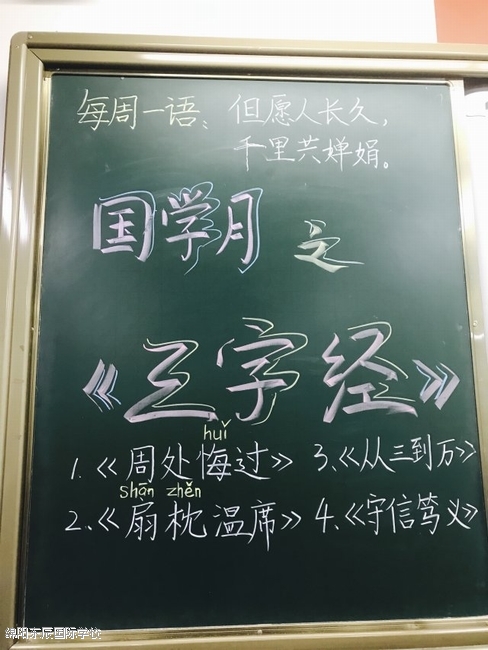 每周一语：但愿人长久，
千里共婵娟。
国学月之
《三字经》
huǐ
1.《周处悔过》 3.《从三到万》
shān zhěn
2.《扇枕温席》 4.《守信笃义》
绵阳东辰国际学校